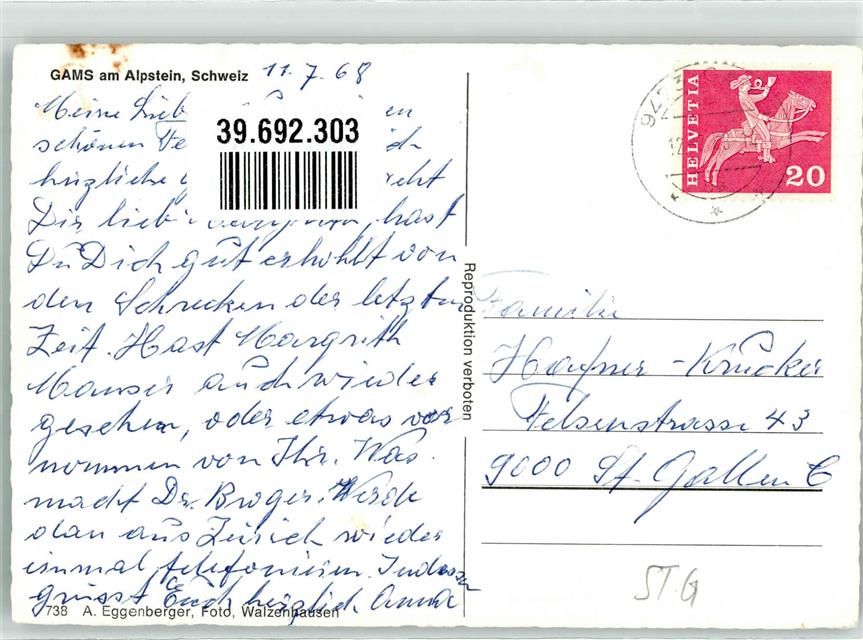 GAMS am Alpstein, Schweiz 11.7.68
Meine
39.692.303
schönen
herzliche
Dir hast
Du Dich gut erhohlt von
den Schrecken der letzten
Zeit. Hast Margrith
Manser auch wieder
gesehen, oder etwas ver-
nommen von Ihr. Was
macht Dr. Broger. Werde
dan aus Zürich wieder
einmal telefonieren. Indessen
grüsst Euch herzlich Anna
738 A. Eggenberger, Foto, Walzenhausen
Reproduktion verboten
HELVETIA
20
Familie
Hafner-Krucker
Felsenstrasse 43
9000 St. Gallen C
ST.G